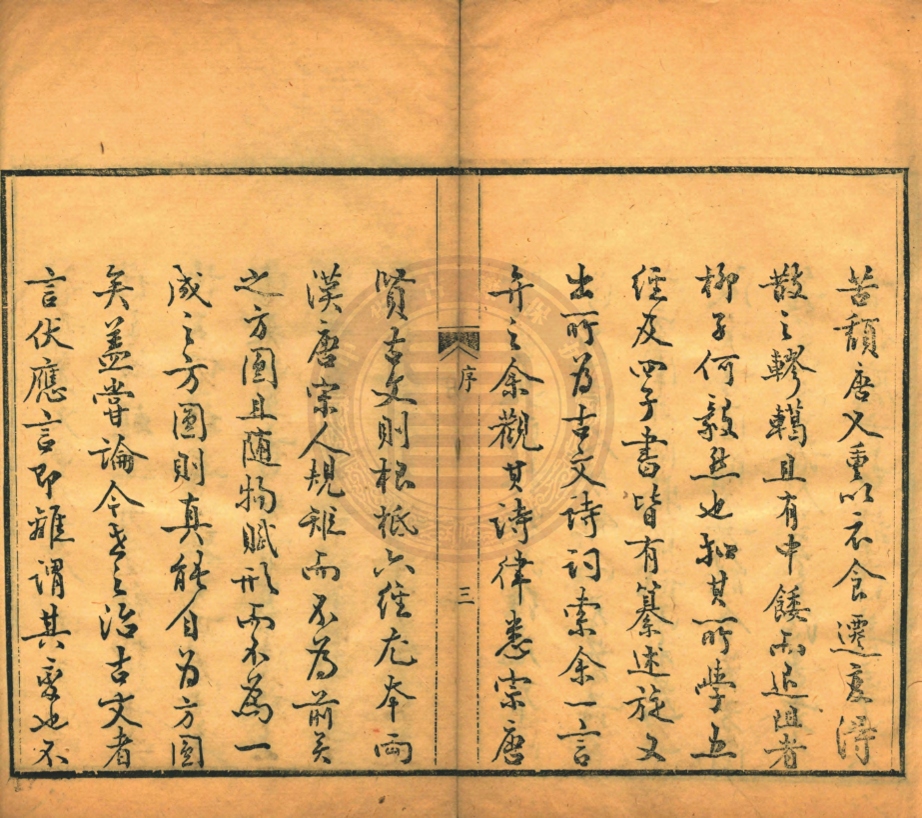 苦頽唐又重以衣食遷変得
散之轇轕且有中餒而退阻者
柳子何毅然也如其所學五
經及四子書皆有纂述旋又
出所为古文詩词索余一言
弁之余觀其詩律悉宗唐
序
三
賢古文則根柢六经尤本両
漢唐宗人規矩而不为前矣
之方圓且随物賦形而不為一
成之方圓則真能自为方圆
矣蓋嘗論今世之治古文者
言伏應言即離謂其变也不